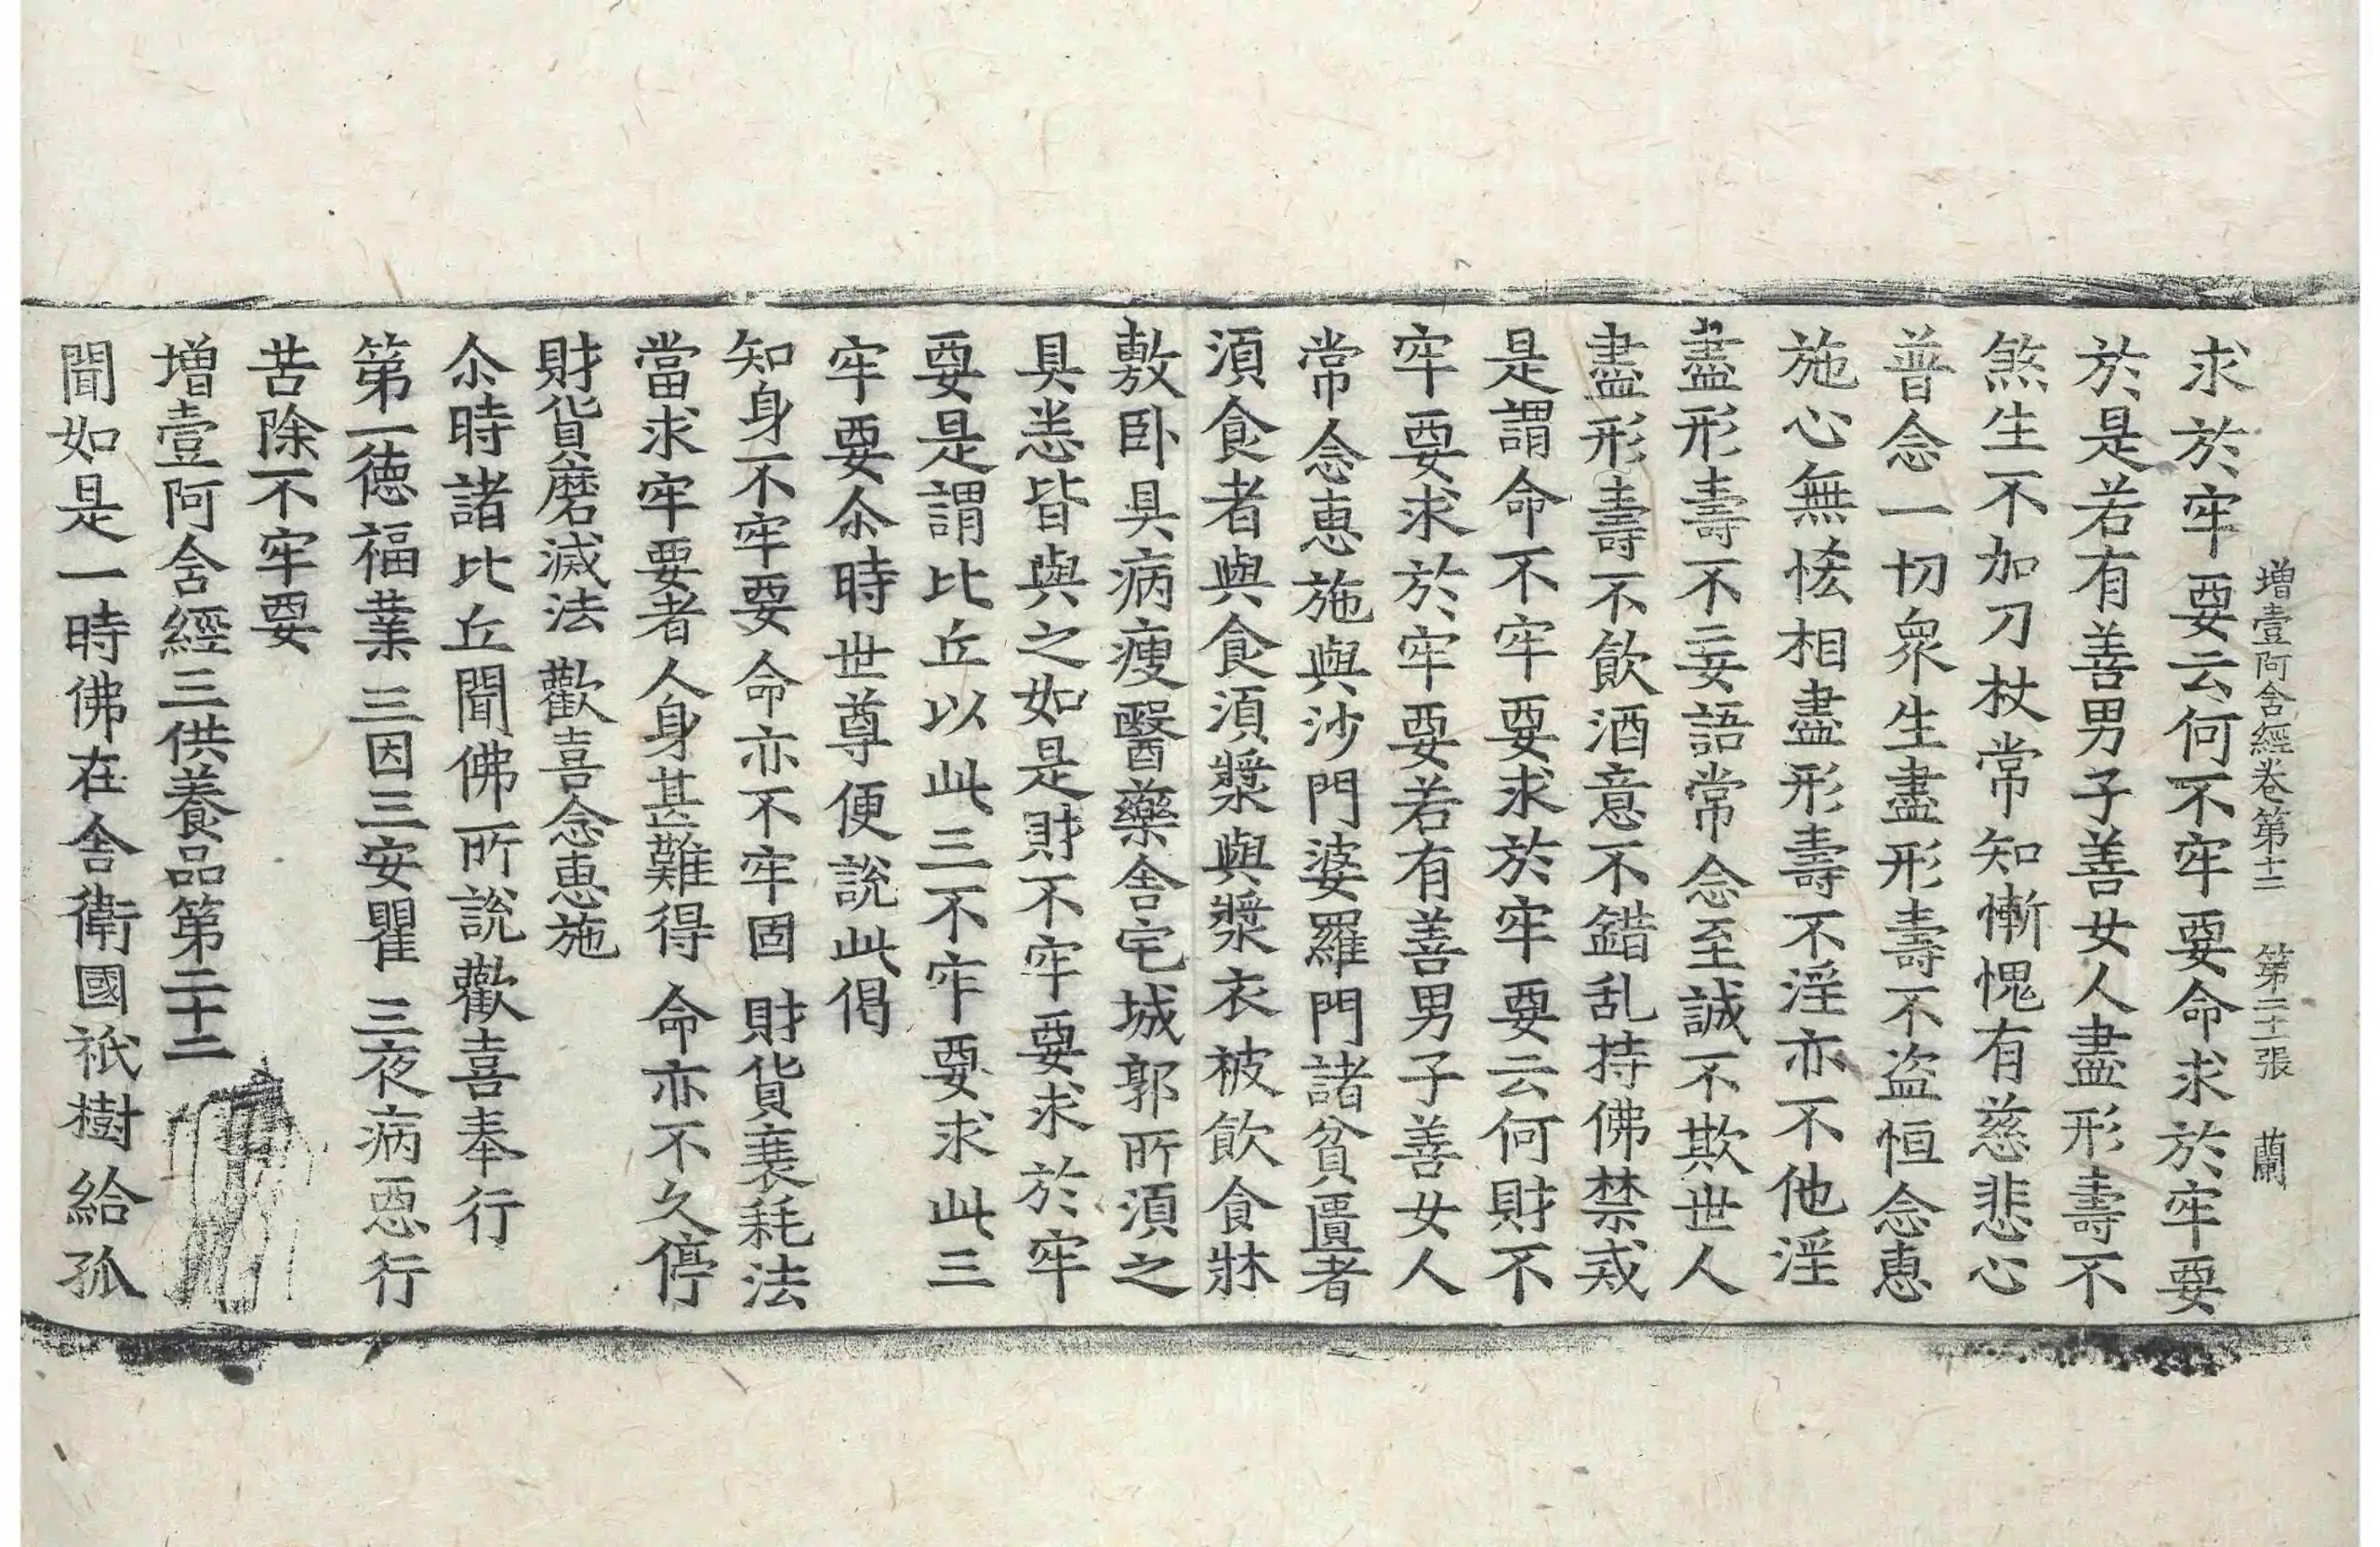 增壹阿含經卷第十二 第二十二張 蘭
求於牢要云何不牢要命求於牢要
於是若有善男子善女人盡形壽不
煞生不加刀杖常知慚愧有慈悲心
普念一切衆生盡形壽不盜恒念惠
施心無悋相盡形壽不淫亦不他淫
盡形壽不妄語常念至誠不欺世人
盡形壽不飲酒意不錯乱持佛禁戒
是謂命不牢要求於牢要云何財不
牢要求於牢要若有善男子善女人
常念惠施與沙門婆羅門諸貧匱者
須食者與食須漿與漿衣被飲食牀
敷卧具病瘦醫藥舍宅城郭所須之
具悉皆與之如是財不牢要求於牢
要是謂比丘以此三不牢要求此三
牢要尒時世尊便說此偈
知身不牢要 命亦不牢固 財貨衰耗法
當求牢要者 人身甚難得 命亦不久停
財貨磨滅法 歡喜念惠施
尒時諸比丘聞佛所說歡喜奉行
第一德福業 三因三安瞿 三夜病惡行
苦除不牢要
增壹阿含經三供養品第二十二
聞如是一時佛在舍衛國祇樹給孤